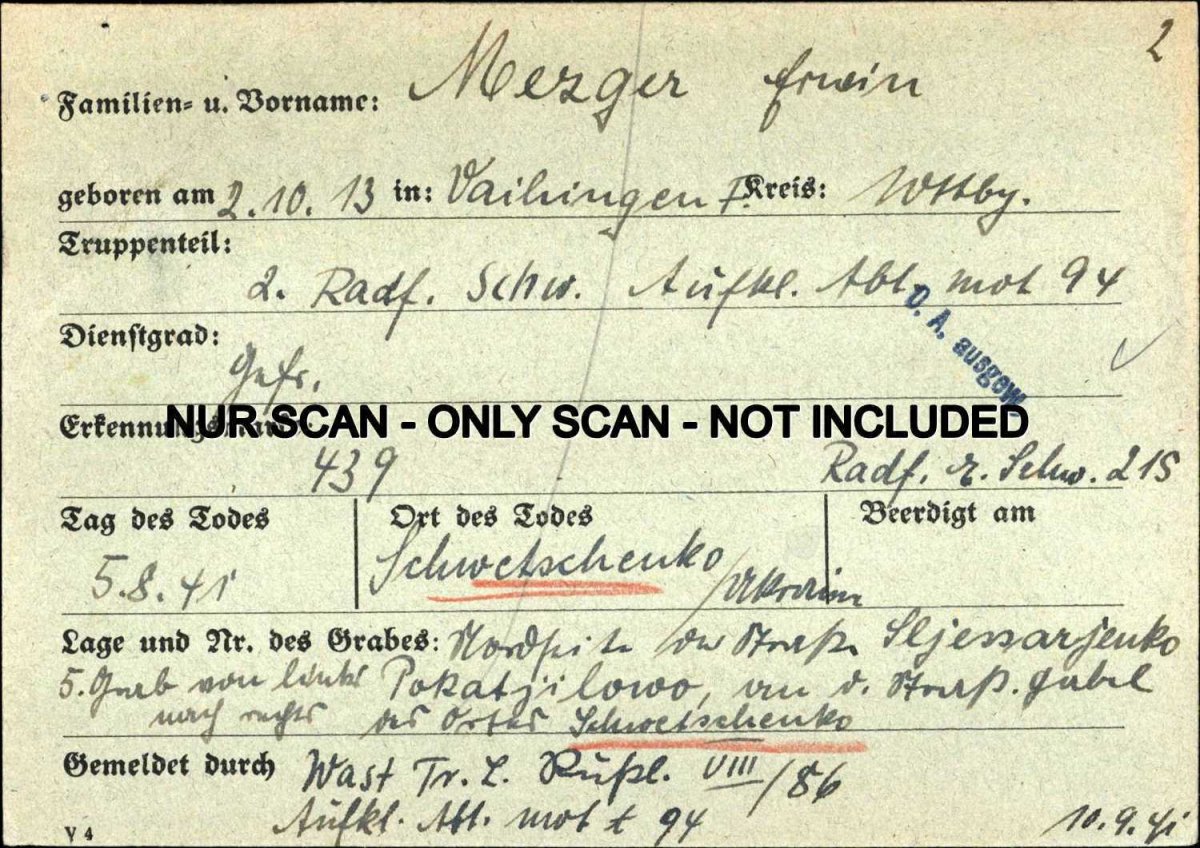 2
Familien- u. Vorname: Mezger Erwin
geboren am 2.10.13 in: Vaihingen F. Kreis: Wttbg.
Truppenteil:
2. Radf. Schw. Aufkl. Abt. mot 94
D. A. ausgew.
Dienstgrad:
Gefr.
NUR SCAN - ONLY SCAN - NOT INCLUDED
439 Radf. E. Schw. 215
Tag des Todes Ort des Todes Beerdigt am
5.8.41 Schwetschenko / Ukraine
Lage und Nr. des Grabes: Nordseite der Straße Sljessarjenko
5. Grab von links Pokatjilowo, an d. Straß. gabel
nach rechts des Ortes Schwetschenko
Gemeldet durch Wast Tr. L. Rußl. VIII/86
Aufkl. Abt. mot 94
V 4 10.9.41